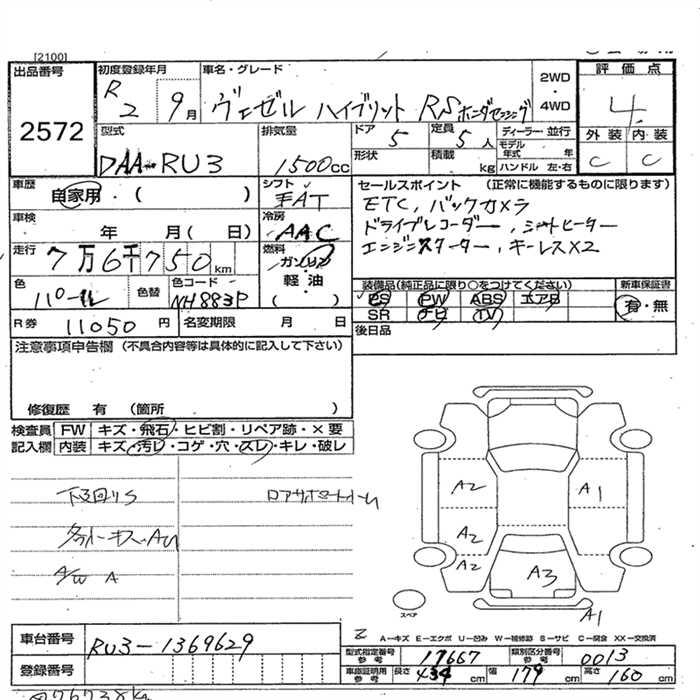 [2100]
出品番号
2572
初度登録年月
R2 9月
車名・グレード
ヴェゼル ハイブリット RSホンダセンシング
2WD
・
4WD
評価点
4
外装 内装
C C
型式
DAA-RU3
排気量
1500cc
ドア 5
定員 5人
ディーラー・並行
モデル年式 年
形状
積載 kg
ハンドル 左・右
車歴
自家用・( )
シフト
AT
セールスポイント (正常に機能するものに限ります)
ETC, バックカメラ
ドライブレコーダー, シートヒーター
エンジンスターター, キーレスX2
車検
年 月( 日)
冷房
AAC
走行
7万6千750km
燃料
ガソリン
軽・油
( )
色
パール
色替
色コード
NH883P
装備品(純正品に限り○をつけてください)
新車保証書
PS PW ABS エアB
有・無
SR ナビ TV
R券 11050円
名変期限 月 日
後日品
注意事項申告欄(不具合内容等は具体的に記入して下さい)
修復歴 有 (箇所 )
検査員
記入欄
FW キズ・飛石・ヒビ割・リペア跡・×要
内装 キズ・汚レ・コゲ・穴・スレ・キレ・破レ
下回りS
A/W A
A2
A1
A2
A2
A3
A1
スペア
A−キズ E−エクボ U−凹み W−補修跡 S−サビ C−腐食 XX−交換済
車台番号
RU3-1369629
登録番号
型式指定番号
参考
17667
類別区分番号
参考
0013
車庫証明用
参考
長さ 434cm
幅 179cm
高さ 160cm